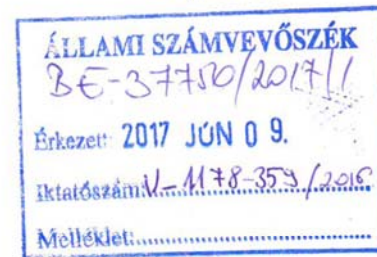 ÁLLAMI SZÁMVEVŐSZÉK
BE-37750/2017/1
Érkezet: 2017 JÚN 0 9.
Iktatószám: V-1178-359/2016
Melléklet: